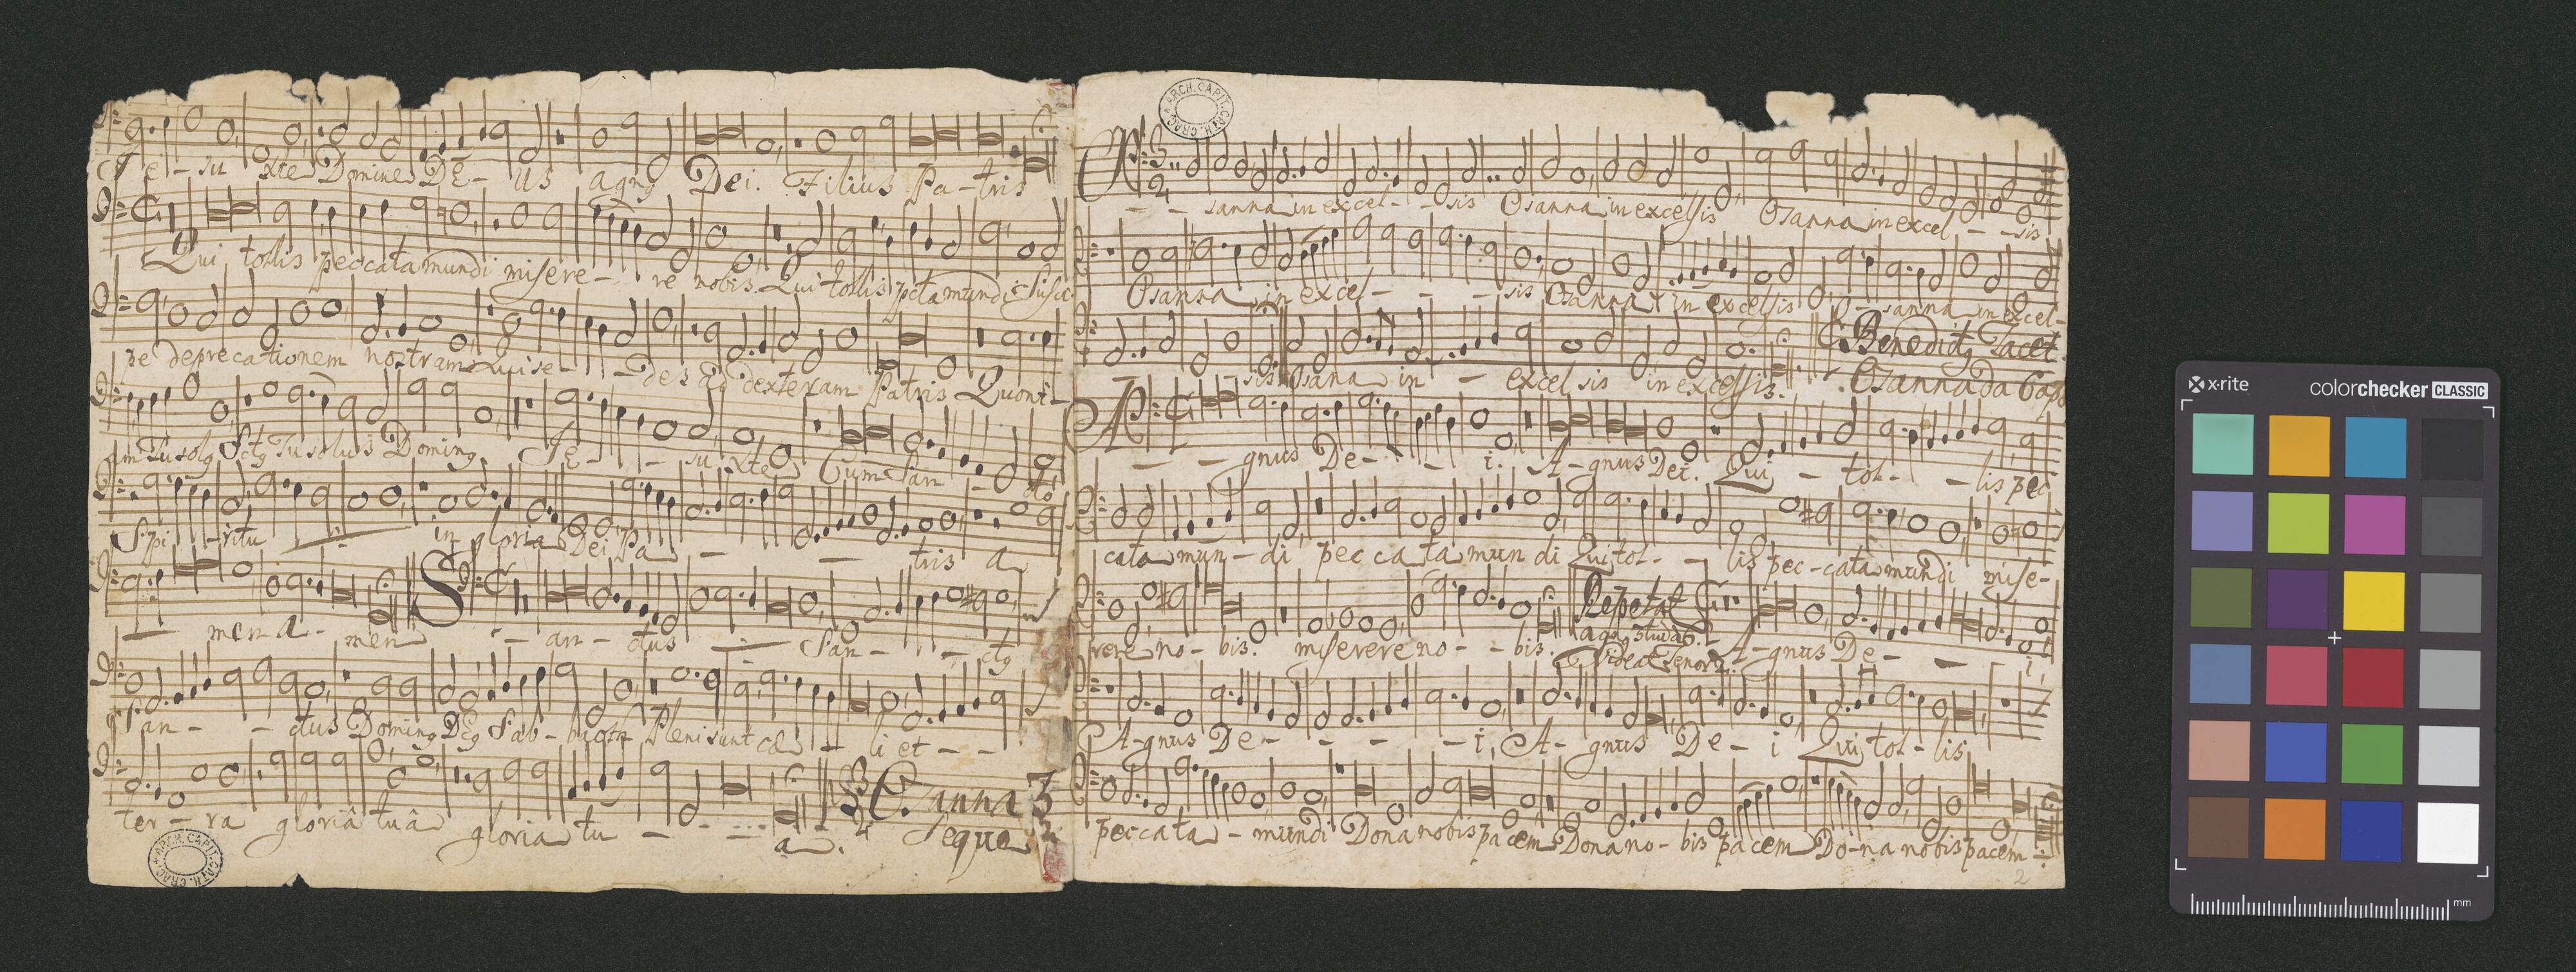 Je - su xte Domine DE - US agng Dei. Filius Pa - tris
Qui tollis peccata mundi misere - re nobis. Qui tollis pctamundi Susci
pe deprecationem nostram Qui se - des ad dexteram Patris Quoni -
am Tu solg Sctg Tu solus Doming Je - - su xte Cum San - - cto
Spi - ritu in gloria Dei Pa - - - tris a
men a - men - an - ctus San - - ctg
San - - ctus Doming DEg Sab - baoth Pleni sunt cæ - li et - -
ter - ra gloriâ tuâ gloria tu - - ... - a.
Osanna 3
Seque 2
ARCH. CAPIT. CATH. CRAC.
ARCH. CAPIT. CATH. CRAC.
- - sanna in excel - - sis Osanna in excelsis Osanna in excel - - sis
Osanna in excel - - - sis Osanna in excelsis O - sanna in excel -
Benedictg Tacet.
sis Osana in - excel sis in excelsis. Osanna da Capo
- - gnus De - - - i. A - gnus Dei. Qui - tol - - lis pec
cata mun - di pec ca ta mun di Qui tol - - lis pec - cata mundi mise -
Repetat
agng
rere no - bis. miserere no - - bis. Videat Tenor A - gnus De - - i,
A - gnus De - - - - i, A - gnus De - i Qui tol - lis
peccata - mundi Dona nobis pacem Dona no - bis pacem Do - na nobis pacem
2
x·rite colorchecker CLASSIC
mm